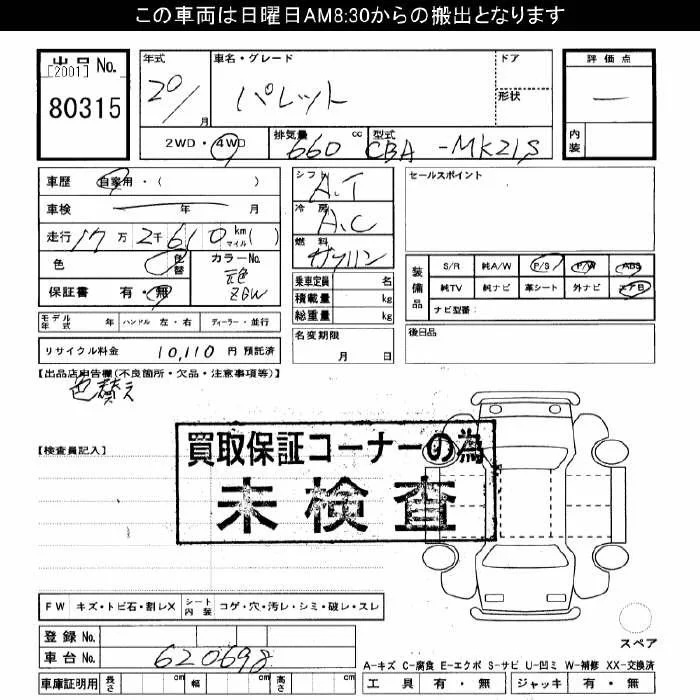 この車両は日曜日AM8:30からの搬出となります
出品 No.
[2001]
80315
年式 20/ 月
車名・グレード パレット
ドア
形状
評価点
—
内装
2WD・4WD
排気量 660 cc
型式 CBA -MK21S
車歴 自家用・( )
車検 年 月
走行 17万2千610 km マイル( )
色 色替
カラーNo. 元色 ZGW
保証書 有・無
シフト A.T
冷房 A.C
燃料 ガソリン
乗車定員 名
積載量 kg
総重量 kg
セールスポイント
装備品
S/R 純A/W P/S P/W ABS
純TV 純ナビ 革シート 外ナビ エアB
ナビ型番:
モデル年式 年 ハンドル 左・右 ディーラー・並行
名変期限
月 日
後日品
リサイクル料金 10,110 円 預託済
【出品店申告欄(不良箇所・欠品・注意事項等)】
色替え
【検査員記入】
買取保証コーナーの為
未検査
FW キズ・トビ石・割レX シート内装 コゲ・穴・汚レ・シミ・破レ・スレ
登録 No.
車台 No. 620698
車庫証明用 長さ cm 幅 cm 高さ cm
スペア
A-キズ C-腐食 E-エクボ S-サビ U-凹ミ W-補修 XX-交換済
工具 有・無 ジャッキ 有・無